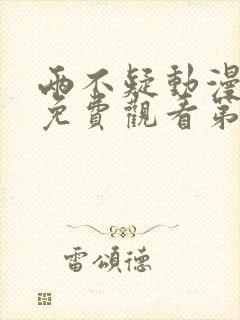 兩不疑動漫
免費觀看第
雷頌德